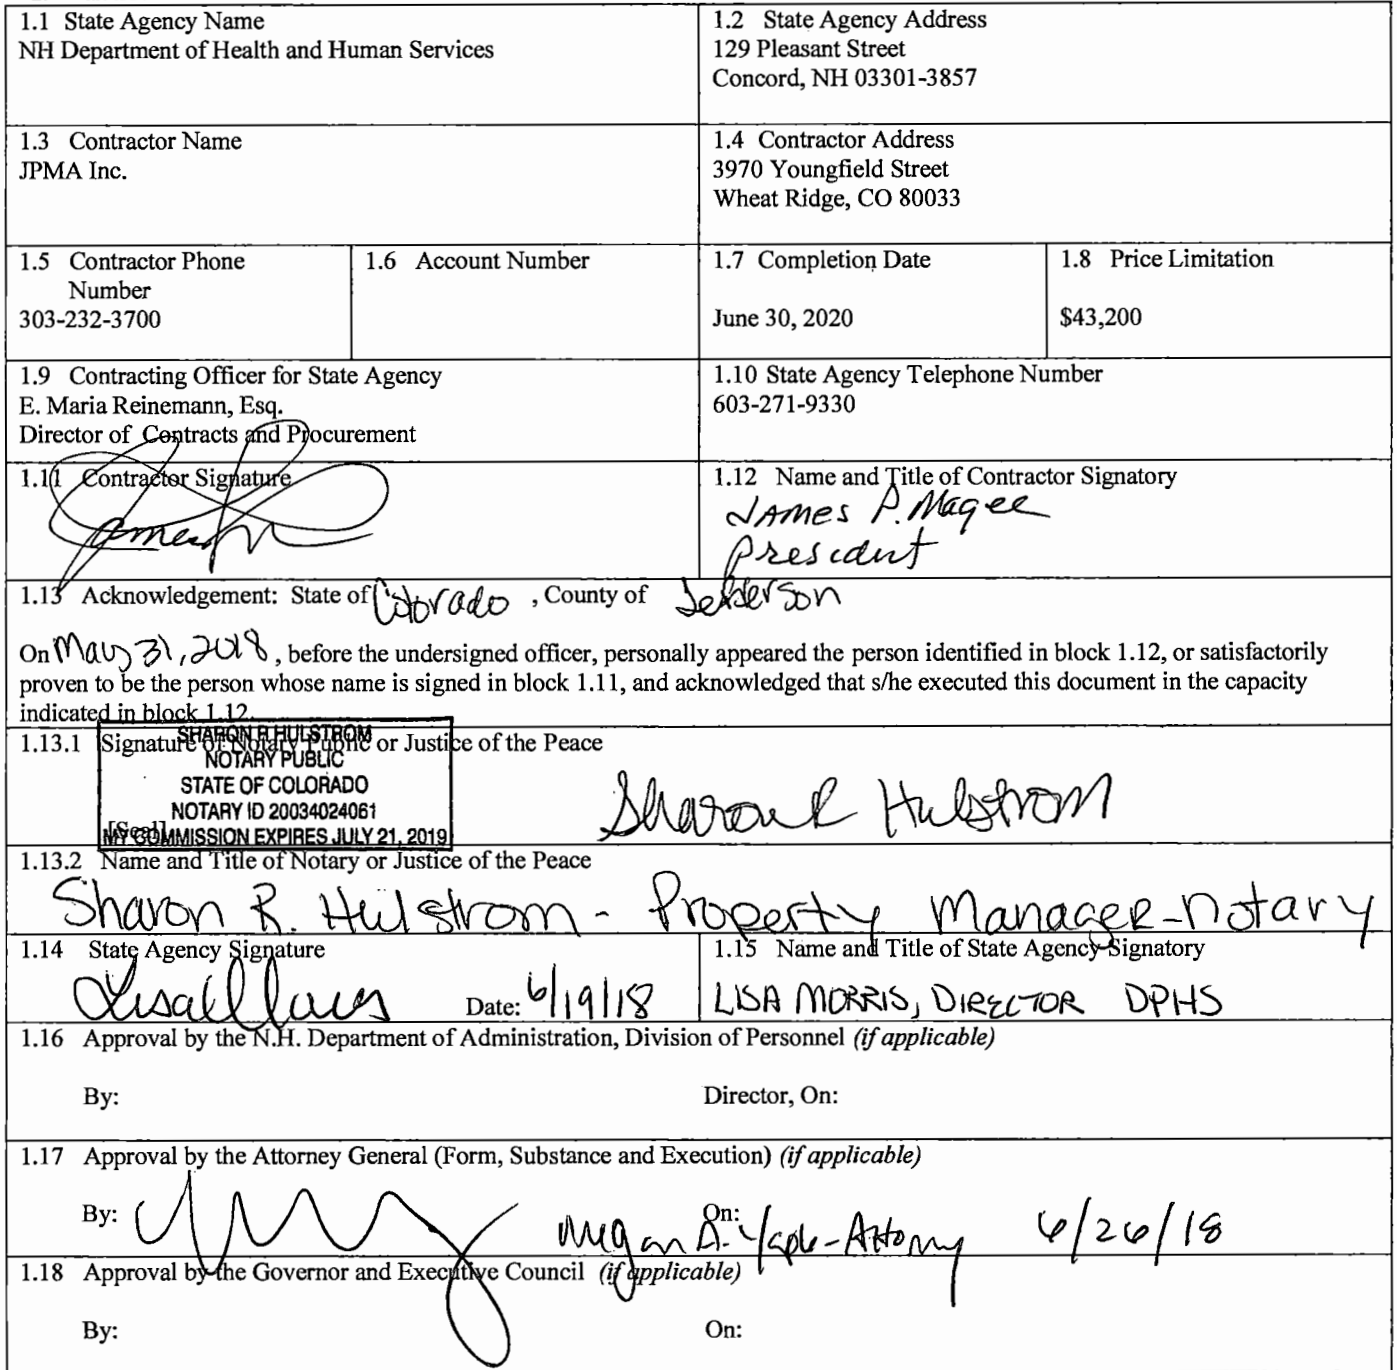 1.1 State Agency Name
NH Department of Health and Human Services
1.2 State Agency Address
129 Pleasant Street
Concord, NH 03301-3857
1.3 Contractor Name
JPMA Inc.
1.4 Contractor Address
3970 Youngfield Street
Wheat Ridge, CO 80033
1.5 Contractor Phone
Number
303-232-3700
1.6 Account Number
1.7 Completion Date
June 30, 2020
1.8 Price Limitation
$43,200
1.9 Contracting Officer for State Agency
E. Maria Reinemann, Esq.
Director of Contracts and Procurement
1.10 State Agency Telephone Number
603-271-9330
1.11 Contractor Signature
1.12 Name and Title of Contractor Signatory
JAMES P. Magee
President
1.13 Acknowledgement: State of Colorado , County of Jefferson
On May 31, 2018 , before the undersigned officer, personally appeared the person identified in block 1.12, or satisfactorily
proven to be the person whose name is signed in block 1.11, and acknowledged that s/he executed this document in the capacity
indicated in block 1.12.
1.13.1 Signature of Notary Public or Justice of the Peace
SHARON R HULSTROM
NOTARY PUBLIC
STATE OF COLORADO
NOTARY ID 20034024061
[Seal]
MY COMMISSION EXPIRES JULY 21, 2019
Sharon R Hulstrom
1.13.2 Name and Title of Notary or Justice of the Peace
Sharon R. Hulstrom - Property Manager-Notary
1.14 State Agency Signature
Date: 6/19/18
1.15 Name and Title of State Agency Signatory
LISA MORRIS, DIRECTOR DPHS
1.16 Approval by the N.H. Department of Administration, Division of Personnel (if applicable)
By: Director, On:
1.17 Approval by the Attorney General (Form, Substance and Execution) (if applicable)
By: On:
Megan A. Yaple-Attorny 6/26/18
1.18 Approval by the Governor and Executive Council (if applicable)
By: On: